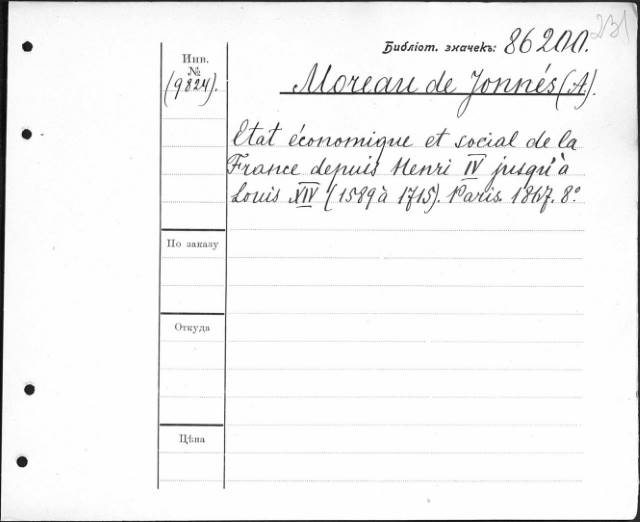 231
Библіот. значекъ: 86200.
Инв.
№
(9824).
Moreau de Jonnés (A).
Etat économique et social de la
France depuis Henri IV jusqu'à
Louis XIV (1589 à 1715). Paris. 1867. 8º.
По заказу
Откуда
Цѣна